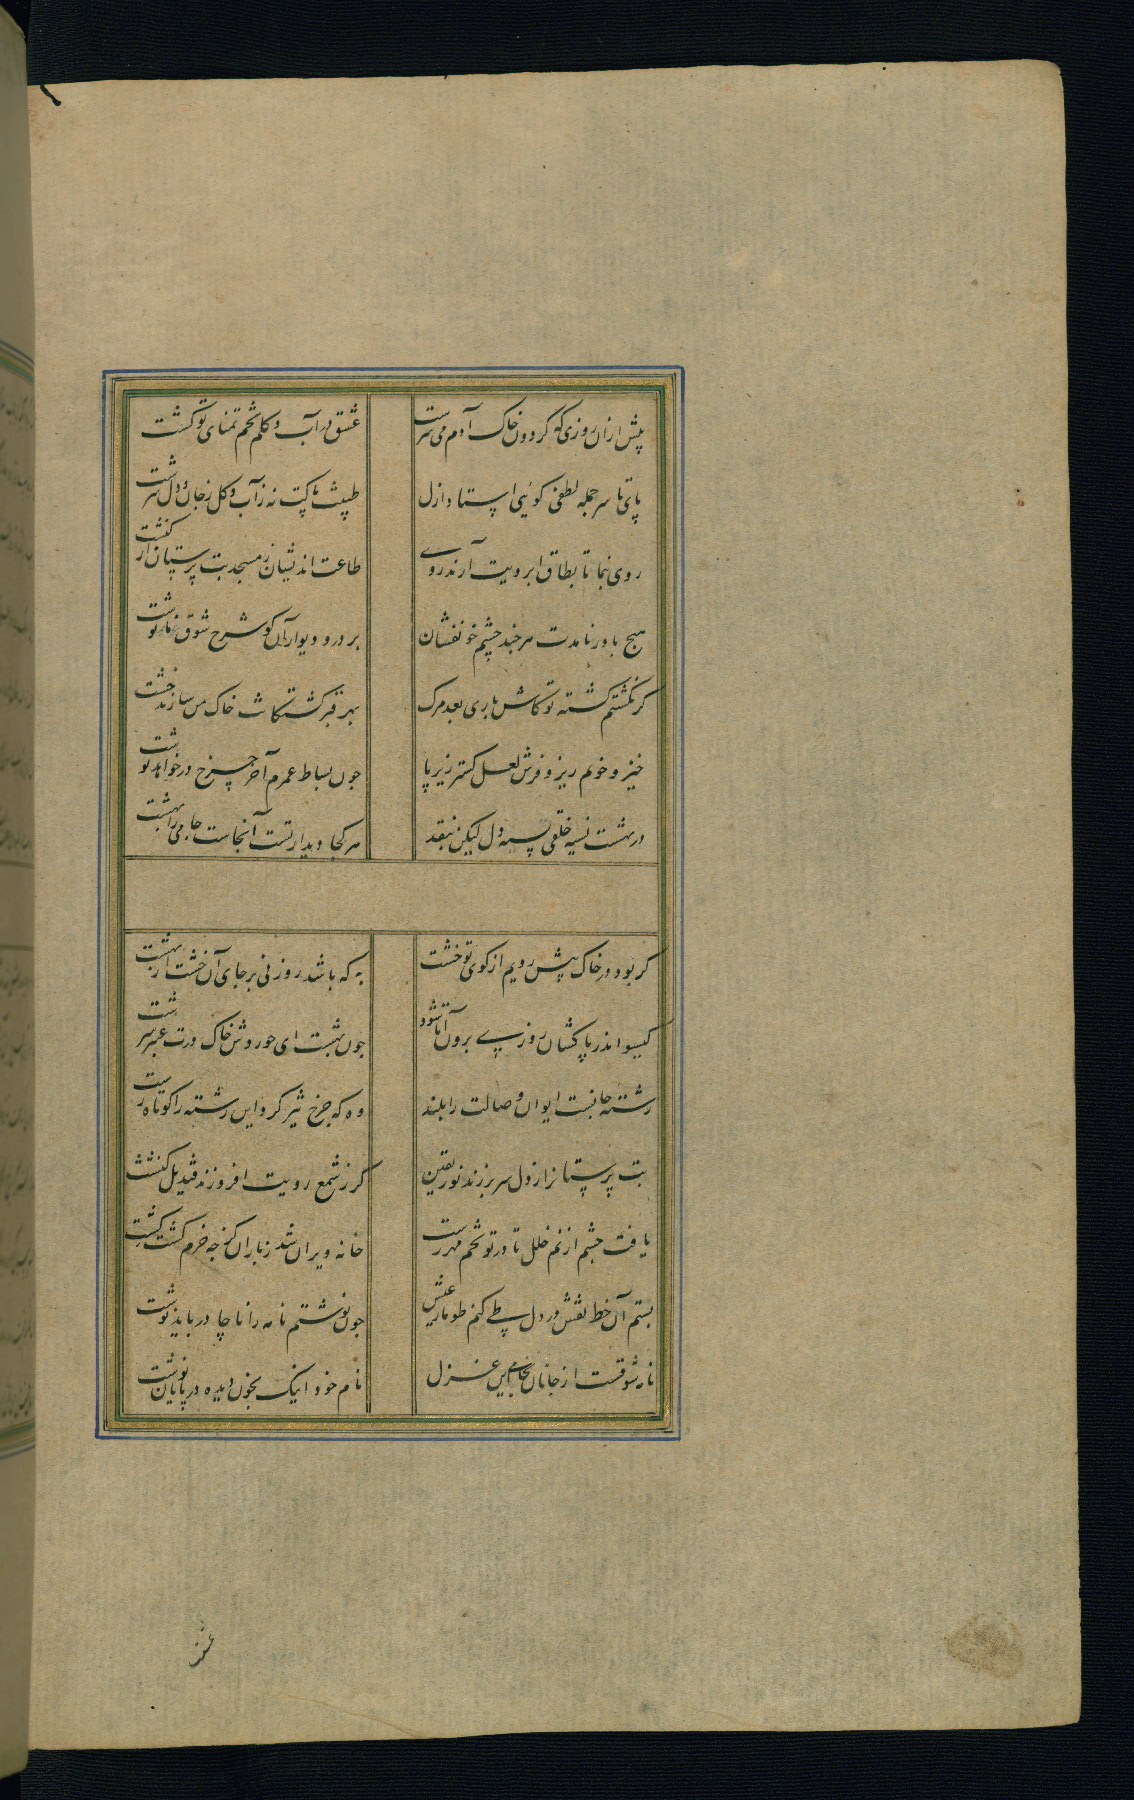 پیش ازان روزی که گردون خاک آدم می سرشت عشق در آب و گلم تخم تمنای تو کشت
پای تا سر جمله لطفی گوئیی استاد ازل طینت پاکت نه ز آب و گل ز جان و دل سرشت
روی بنما تا بطاق ابرویت آرند روی طاعت اندیشان ز مسجد بت پرستان از کنشت
هیچ باور نامدت هر چند چشم خونفشان بر در و دیوار آن کو شرح شوق ما نوشت
گر نگشتم کشته تو کاش باری بعد مرگ بهر قبر کشتگانت خاک من سازند خشت
خیز و خونم ریز و فرش لعل گستر زیر پا چون بساط عمرم آخر چرخ در خواهد نوشت
در بهشت نسیه خلقی بسته دل لیکن بنقد هر کجا دیدار تست آنجاست جامی را بهشت
گر بود در خاک پیش رویم از کوی تو خشت به که باشد روزنی بر جای آن خشت از بهشت
گیسو اندر پا کشان روزی برون آ تا شود چون بهشت ای حوروش خاک درت عنبر سرشت
رشته جانست ایوان وصالت را بلند وه که چرخ تیز گرد این رشته را کوتاه رشت
بت پرستانرا ز دل سر بر زند نور یقین گر ز شمع رویت افروزند قندیل کنشت
یافت چشم از نم خلل تا در تو تخم مهر رست خانه ویران شد ز باران گر چه خرم گشت کشت
بستم آن خط نقش در دل طی کنم طومار عیش چون نوشتم نامه را ناچار در باید نوشت
نامه شوقست از جانان بجامی این غزل نام خود اینک بخون دیده در پایان نوشت